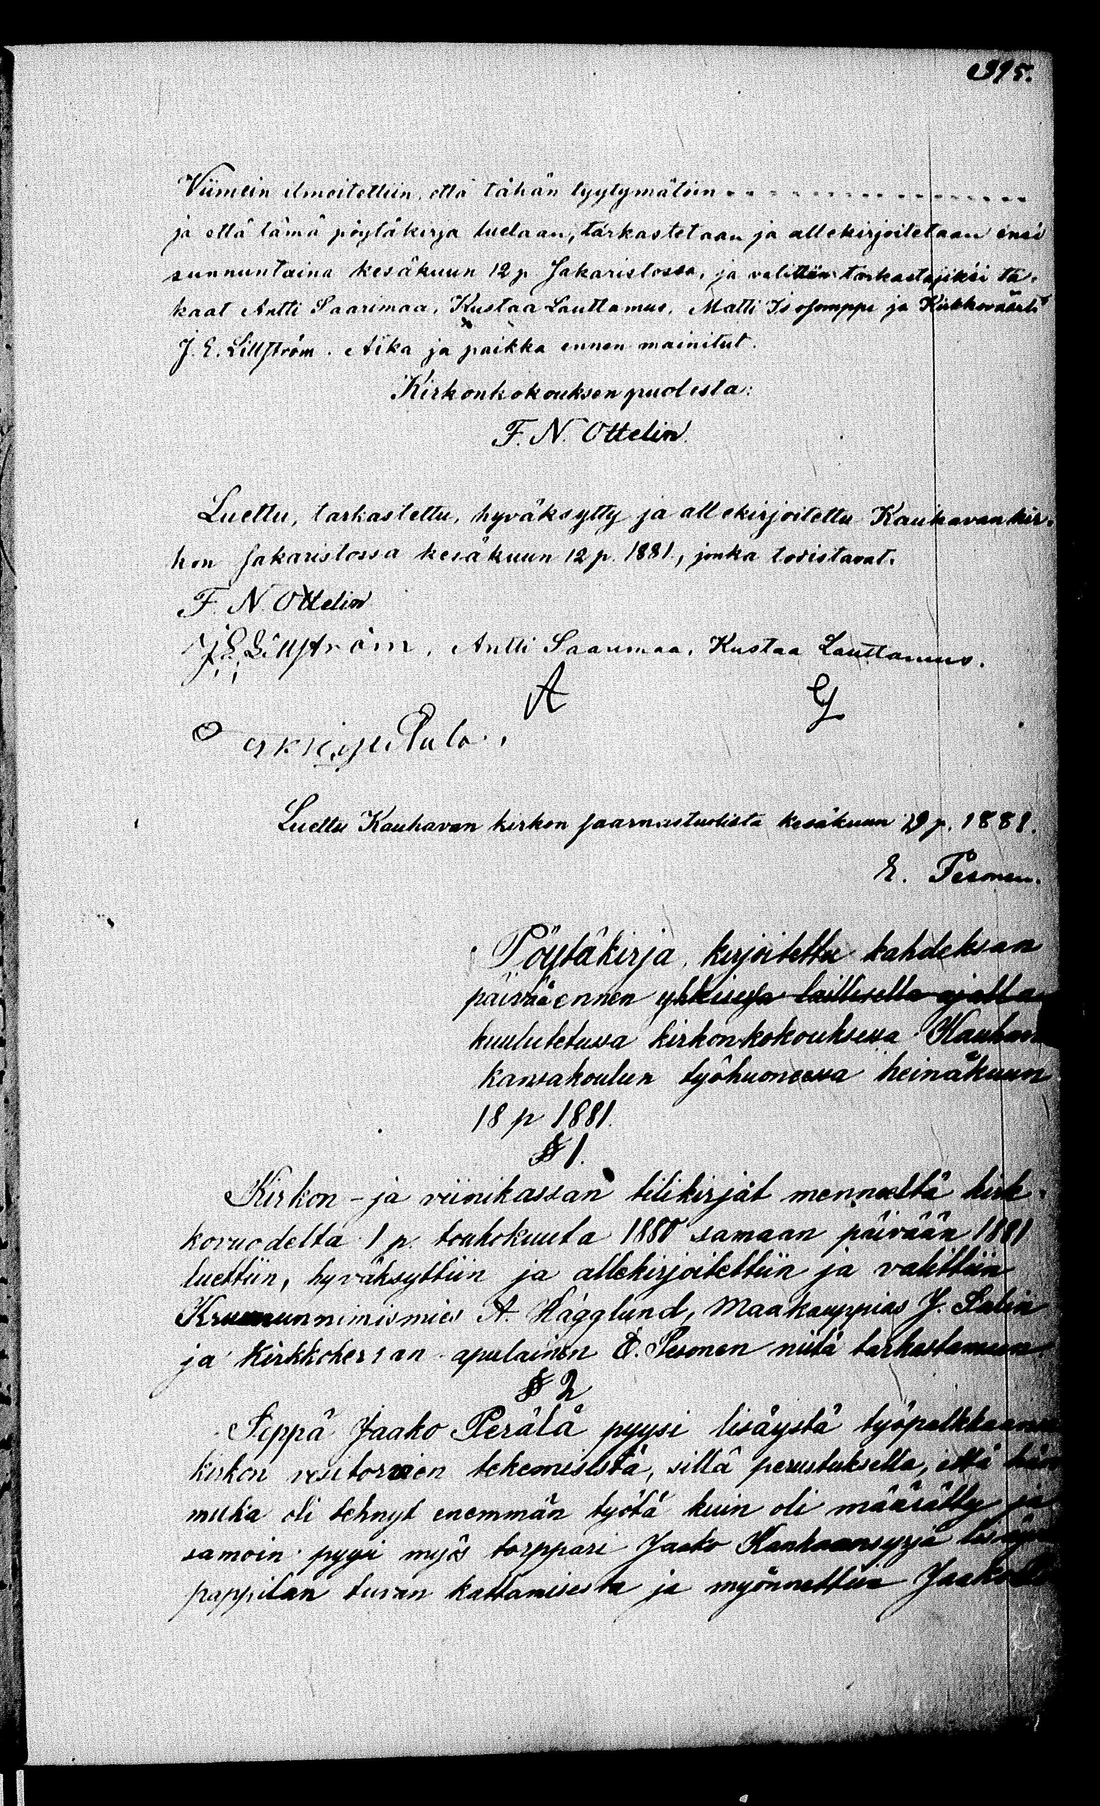 395.
Viimein ilmoitettiin, että tähän tyytymätöin - - - - - - - - - - - - - - - -
ja että tämä pöytäkirja luetaan, tarkastetaan ja allekirjoitetaan ensi
sunnuntaina kesäkuun 12 p. Sakaristossa, ja valittiin tarkastajiksi ta-
kaat Antti Saarimaa, Kustaa Lauttamus, Matti Isosomppi ja Kirkkoväärti
J. E. Lillström. Aika ja paikka ennen mainitut.
Kirkonkokouksen puolesta:
F. N. Ottelin.
Luettu, tarkastettu, hyväksytty ja allekirjoitettu Kauhavan kir-
kon Sakaristossa kesäkuun 12 p. 1881, jonka todistavat.
F. N. Ottelin
J. E. Lillström, Antti Saarimaa, Kustaa Lauttamus.
A
Luettu Kauhavan kirkon saarnastuolista kesäkuun 19 p. 1881.
E. Pesonen.
Pöytäkirja, kirjoitettu kahdeksan
päivää ennen yhteisesti laillisella ajalla
kuulutetussa kirkonkokouksessa
kansakoulun työhuoneessa heinäkuun
18 p 1881.
§ 1.
Kirkon- ja viinikassan tilikirjat menneeltä kirk-
kovuodelta 1 p. toukokuuta 1880 samaan päivään 1881
luettiin, hyväksyttiin ja allekirjoitettiin ja valittiin
Kruunun nimismies A. Hägglund, Maakauppias J. Salin
ja Kirkkoherran apulainen E. Pesonen niitä tarkastamaan
§ 2
Seppä Jaako Perälä pyysi lisäystä
kirkon vesitorvien tekemisistä, sillä perustuksella, että hän
muka oli tehnyt enemmän työtä kuin oli määrätty ja
samoin pyysi myös torppari Jaako Kankaansyrjä
pappilan tuvan kattamisesta ja myönnettiin